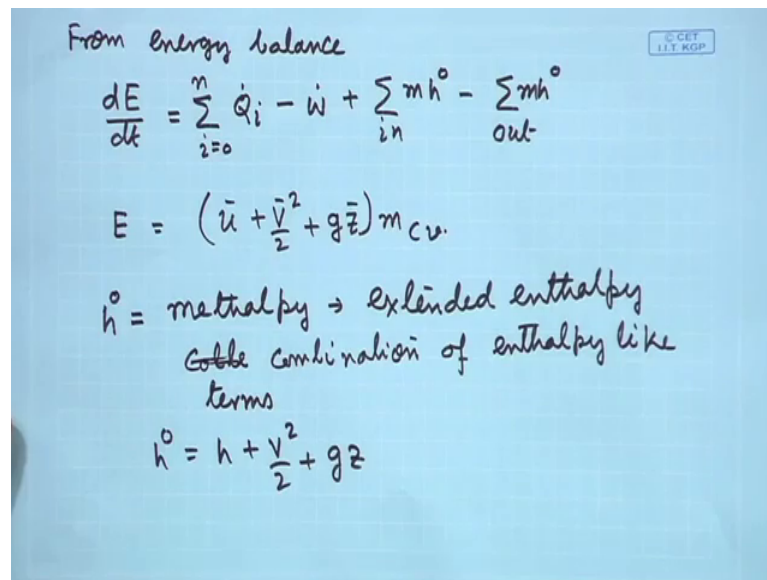 From energy balance
© CET
I.I.T. KGP
dE/dt = Σ_{i=0}^{n} Q̇_i - ẇ + Σ_{in} mh° - Σ_{out} mh°
E = (ū + v̄²/2 + gz̄) m_{cv.}
h° = methalpy → extended enthalpy
combination of enthalpy like
terms
h° = h + v²/2 + gz